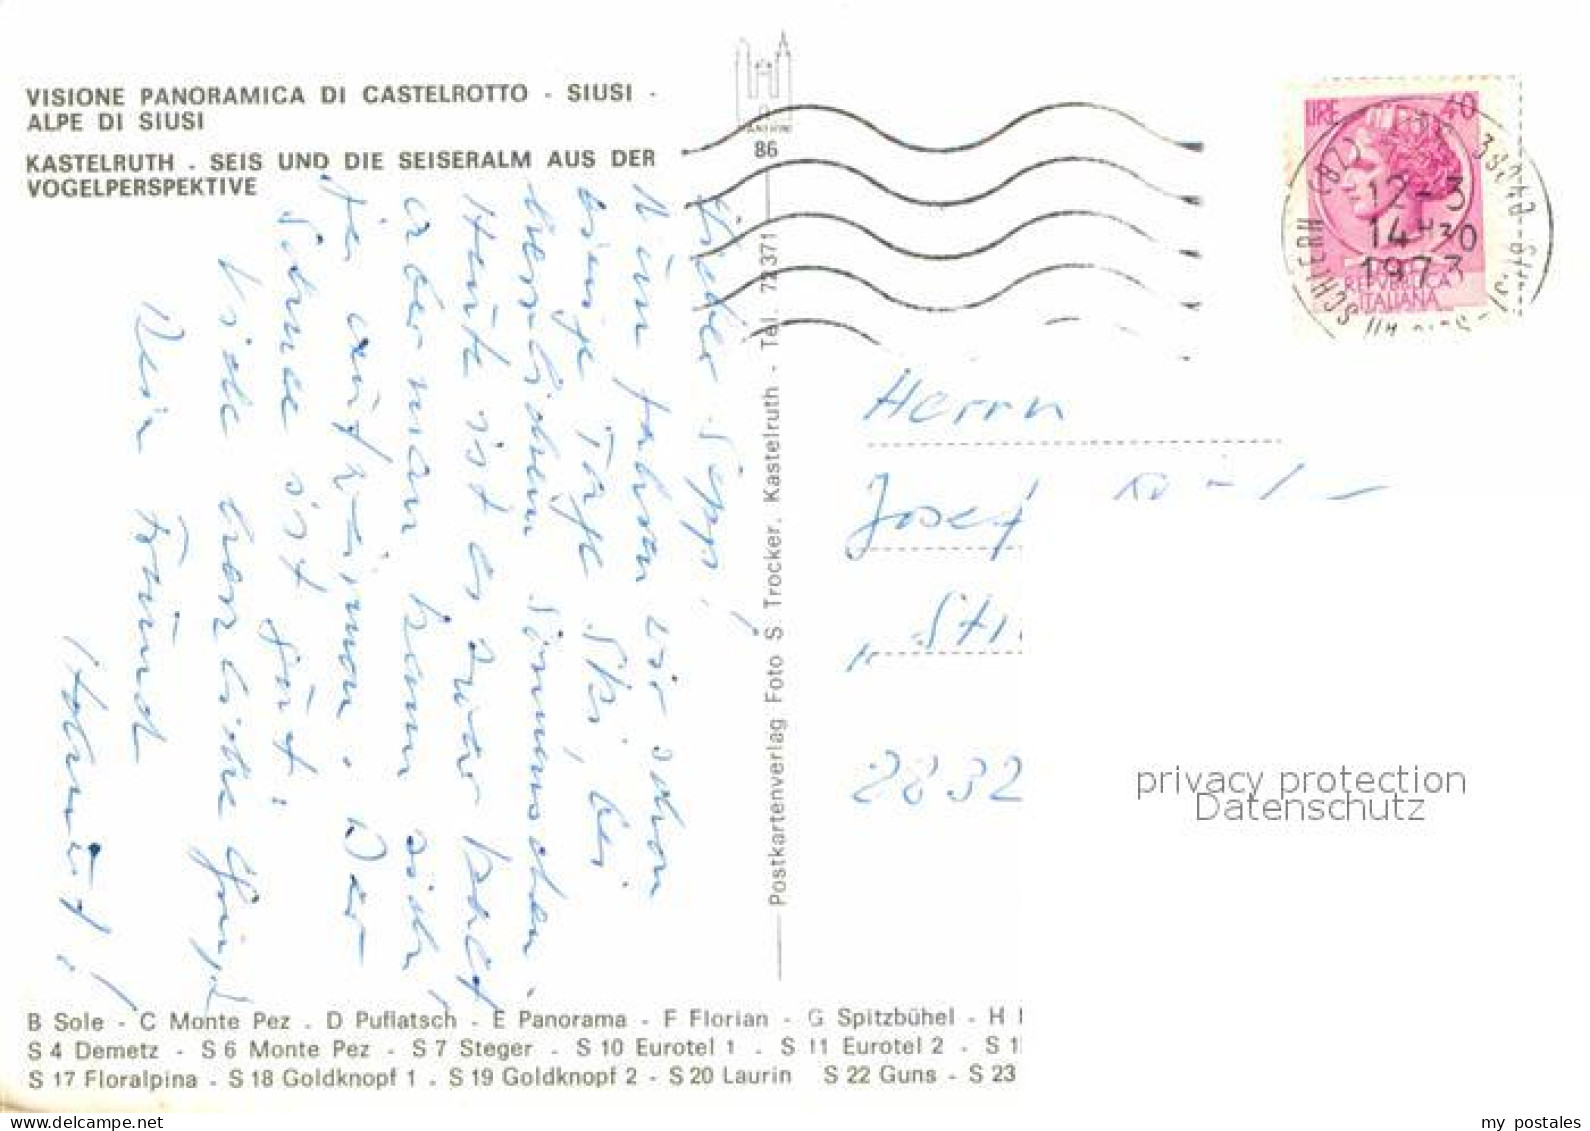 VISIONE PANORAMICA DI CASTELROTTO - SIUSI -
ALPE DI SIUSI
KASTELRUTH - SEIS UND DIE SEISERALM AUS DER
VOGELPERSPEKTIVE
Lieber Sepp!
Nun fahren wir schon
einige Tage Ski, bei
herrlichem Sonnenschein.
Heute ist es zwar kalt
aber man kann sich
ja aufwärmen. Der
Schnee ist gut!
Viele herzliche Grüße
Dein Freund
Helmut!
86
Postkartenverlag Foto S Trocker, Kastelruth - Tel. 72371
LIRE 40
12-3
14 30
1973
REPVBBLICA
ITALIANA
SCHLERN
Herrn
Josef
2832
privacy protection
Datenschutz
B Sole - C Monte Pez - D Puflatsch - E Panorama - F Florian - G Spitzbühel - H
S 4 Demetz - S 6 Monte Pez - S 7 Steger - S 10 Eurotel 1 - S 11 Eurotel 2 - S 1
S 17 Floralpina - S 18 Goldknopf 1 - S 19 Goldknopf 2 - S 20 Laurin S 22 Guns - S 23
my postales